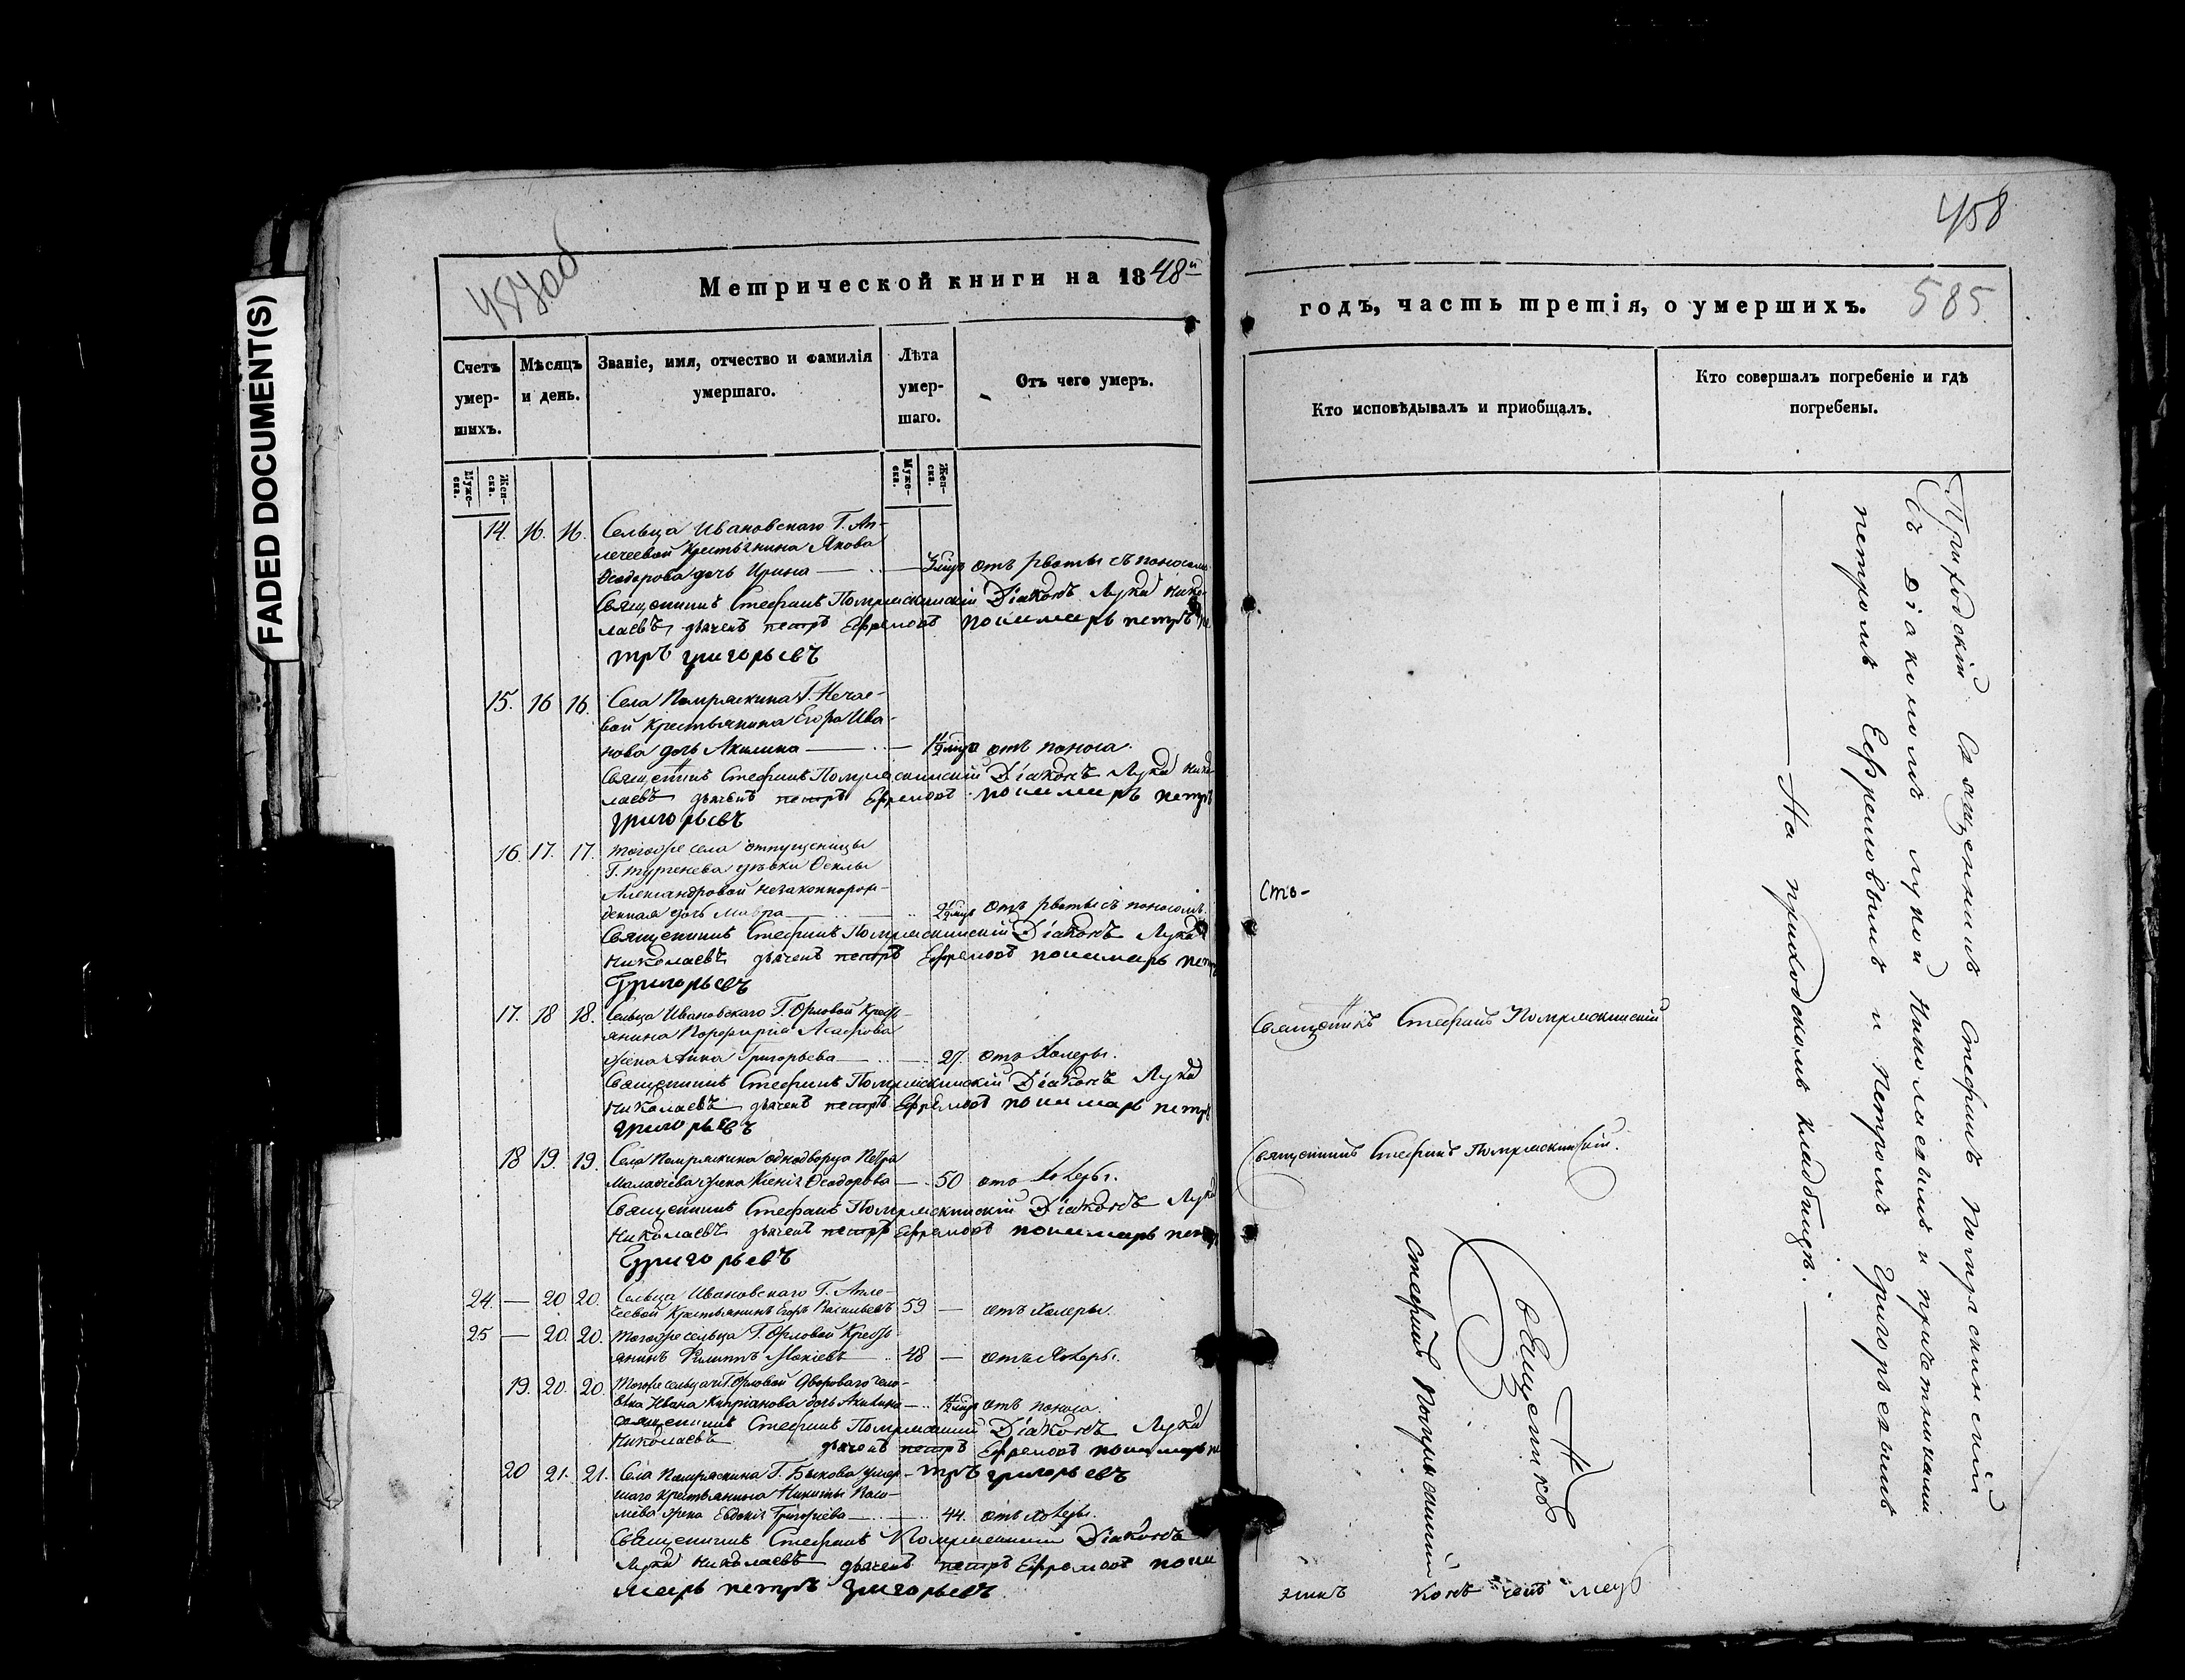 FADED DOCUMENT(S)
457 об
Метрической книги на 1848й
Счетъ умер- шихъ.
Мѣсяцъ и день.
Званіе, имя, отчество и фамилія умершаго.
Лѣта умер- шаго.
Отъ чего умеръ.
Муже- ска. Жен- ска.
Муже- ска. Жен- ска.
14. 16. 16. Сельца Ивановскаго Г. Ап-
лечеевой Крестьянина Якова
Ѳеодорова дочь Ирина отъ рвоты съ поносомъ.
Священникъ Стефанъ Помряскинскій Діаконъ Лука Нико-
лаевъ дьячекъ петръ Ефремовъ пономарь петръ
григорьевъ
15. 16 16. Села Помряскина Г. Нечае-
вой Крестьянина Егора Ива-
нова дочь Акилина отъ поноса.
Священникъ Стефанъ Помряскинскій Діаконъ Лука Нико
лаевъ дьячекъ петръ Ефремовъ пономарь петръ
григорьевъ
16. 17. 17. Тогоже села отпущеницы
Г. Тургенева дѣвки Ѳеклы
Александровой незаконнорож-
денная дочь Мавра отъ рвоты съ поносомъ.
Священникъ Стефанъ Помряскинскій Діаконъ Лука
Николаевъ дьячекъ петръ Ефремовъ пономарь петръ
Григорьевъ
17. 18 18. Сельца Ивановскаго Г. Орловой Крест-
янина Порфирія
жена Анна Григорьева 27. отъ Холеры.
Священникъ Стефанъ Помряскинскій Діаконъ Лука
Николаевъ дьячекъ петръ Ефремовъ пономарь петръ
григорьевъ
18 19. 19. Села Помряскина однодворца Петра
жена Ксенія Ѳеодорова 50 отъ Холеры.
Священникъ Стефанъ Помряскинскій Діаконъ Лука
Николаевъ дьячекъ петръ Ефремовъ пономарь петръ
Григорьевъ
24. — 20 20. Сельца Ивановскаго Г. Апле-
чеевой Крестьянинъ Егоръ Васильевъ 59 — отъ Холеры.
25 — 20. 20. Тогоже сельца Г. Орловой Крест-
янинъ Филиппъ 48 — отъ Холеры.
19. 20. 20. Тогоже сельца Г. Орловой Двороваго чело-
вѣка Ивана Кипріанова дочь Акилина отъ поноса.
священникъ Стефанъ Діаконъ Лука
Николаевъ дьячекъ петръ Ефремовъ пономарь пе
20 21. 21. Села Помряскина Г. Быкова умер- тръ григорьевъ
шаго крестьянина Никиты
жена Евдокія Григорьева 44. отъ холеры.
Священникъ Стефанъ Діаконъ
Лука Николаевъ дьячекъ петръ Ефремовъ поно
марь петръ Григорьевъ
458
годъ, часть третія, о умершихъ. 585
Кто исповѣдывалъ и пріобщалъ.
Кто совершалъ погребеніе и гдѣ погребены.
Сто-
Священникъ Стефанъ Помряскинскій
Священникъ Стефанъ Помряскинскій.
Приходскій Священникъ Стефанъ Помряскинскій
съ Діакономъ Лукой Николаевымъ и причетниками
петромъ Ефремовымъ и Петромъ Григорьевымъ
На приходскомъ кладбищѣ.
Священникъ
Стефанъ Помряскинскій